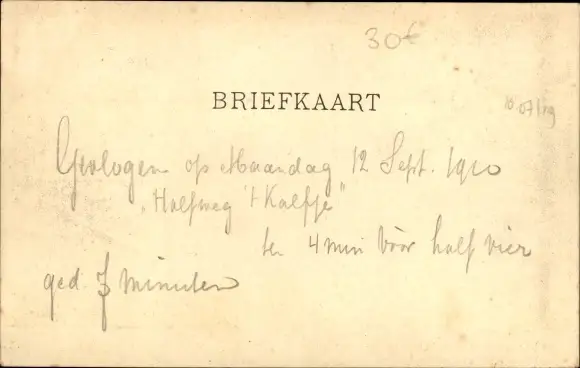 30€
BRIEFKAART
Gevlogen op Maandag 12 Sept. 1910
„Halfweg 't Kalfje"
te 4 min vòòr half vier
ged. 7 minuten